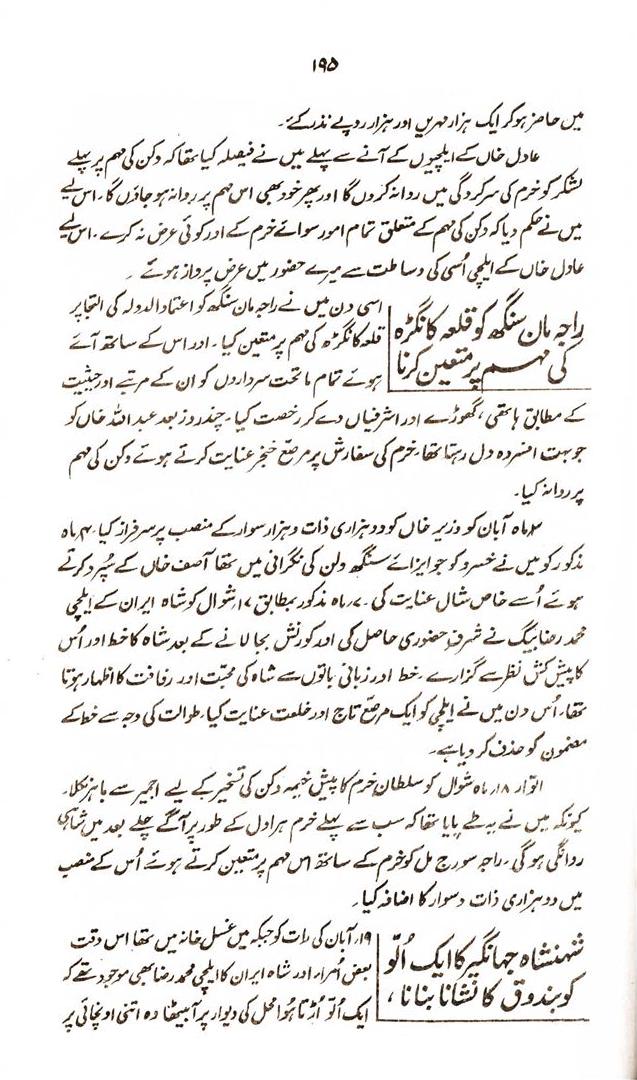 ۱۹۵
میں حاضر ہو کر ایک ہزار مہریں اور ہزار روپے نذر کئے۔
عادل خاں کے ایلچیوں کے آنے سے پہلے میں نے فیصلہ کیا تھا کہ دکن کی مہم پر پہلے
لشکر کو خرم کی سرکردگی میں روانہ کروں گا اور پھر خود بھی اس مہم پر روانہ ہو جاؤں گا۔ اس لیے
میں نے حکم دیا کہ دکن کی مہم کے متعلق تمام امور سوائے خرم کے اور کوئی عرض نہ کرے۔ اس لیے
عادل خاں کے ایلچی اُسی کی وساطت سے میرے حضور میں عرض پرداز ہوئے۔
راجہ مان سنگھ کو قلعہ کانگڑہ
کی مہم پر متعین کرنا
اسی دن میں نے راجہ مان سنگھ کو اعتماد الدولہ کی التجا پر
قلعہ کانگڑہ کی مہم پر متعین کیا۔ اور اس کے ساتھ آئے
ہوئے تمام ماتحت سرداروں کو ان کے مرتبے اور حیثیت
کے مطابق ہاتھی، گھوڑے اور اشرفیاں دے کر رخصت کیا۔ چند روز بعد عبداللہ خاں کو
جو بہت افسردہ دل رہتا تھا۔ خرم کی سفارش پر مرصّع خنجر عنایت کرتے ہوئے دکن کی مہم
پر روانہ کیا۔
ماہ آبان کو وزیر خاں کو دو ہزاری ذات و ہزار سوار کے منصب پر سرفراز کیا۔ ۴ ماہ
مذکور کو میں نے خسرو کو جو ایزائے سنگھ دلن کی نگرانی میں تھا آصف خاں کے سپرد کرتے
ہوئے اُسے خاص شال عنایت کی۔ ۷ ماہ مذکور بمطابق ۱۷ شوال کو شاہ ایران کے ایلچی
محمد رضا بیگ نے شرفِ حضوری حاصل کی اور کورنش بجا لانے کے بعد شاہ کا خط اور اُس
کا پیش کش نظر سے گزارے۔ خط اور زبانی باتوں سے شاہ کی محبّت اور رفاقت کا اظہار ہوتا
تھا۔ اُس دن میں نے ایلچی کو ایک مرصّع تاج اور خلعت عنایت کیا۔ طوالت کی وجہ سے خط کے
مضمون کو حذف کر دیا ہے۔
اتوار ۱۸ ماہ شوال کو سلطان خرم کا پیش خیمہ دکن کی تسخیر کے لیے اجمیر سے باہر نکلا۔
کیونکہ میں نے یہ طے پایا تھا کہ سب سے پہلے خرم ہراول کے طور پر آگے چلے بعد میں شاہی
روانگی ہو گی۔ راجہ سورج مل کو خرم کے ساتھ اس مہم پر متعین کرتے ہوئے اُس کے منصب
میں دو ہزاری ذات و سوار کا اضافہ کیا۔
شہنشاہ جہانگیر کا ایک اُلّو
کو بندوق کا نشانا بنانا،
۱۹ آبان کی رات کو جبکہ میں غسل خانہ میں تھا اس وقت
بعض اُمرا اور شاہ ایران کا ایلچی محمد رضا بھی موجود تھے کہ
ایک اُلّو اُڑتا ہُوا محل کی دیوار پر آ بیٹھا وہ اتنی اونچائی پر